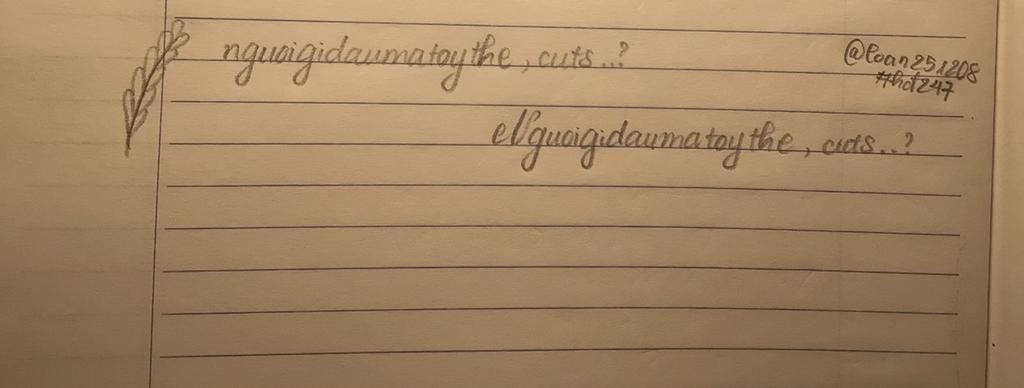 nguoigidaumatoythe, cuts..?
@loan251208
#hot247
el/guoigidaumatoythe, cuts..?